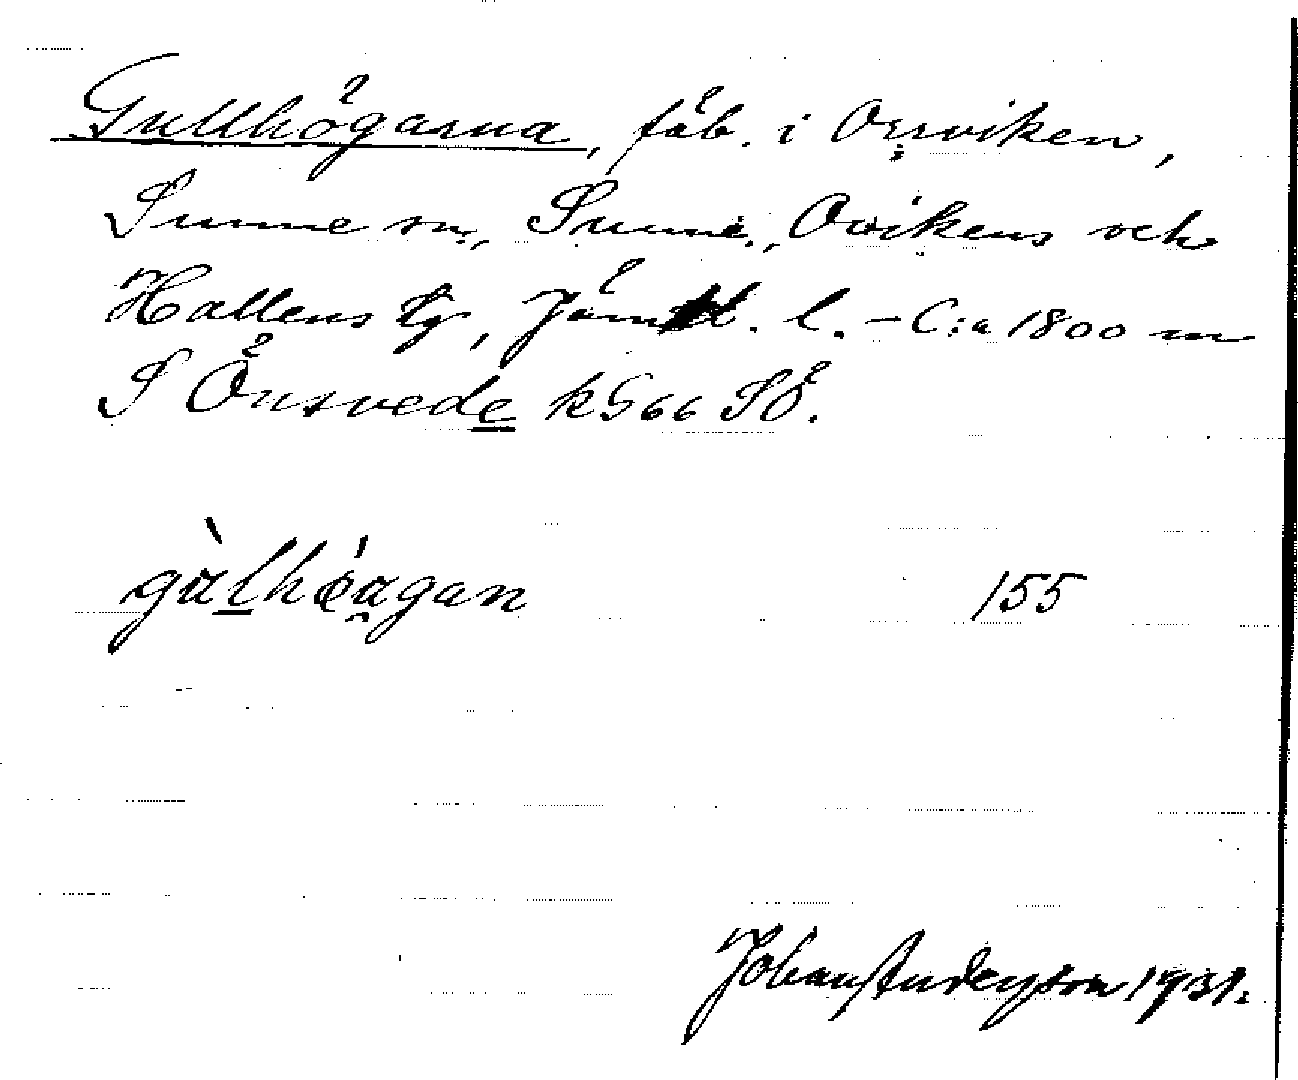 Gullhögarna, fäb. i Orrviken,
Sunne sn, Sunne, Ovikens och
Hallens tg, Jämtl. l. – C:a 1800 m
S Önsvede kG66 SÖ.
gàlhö́agan 155
Johan Anderson 1931.